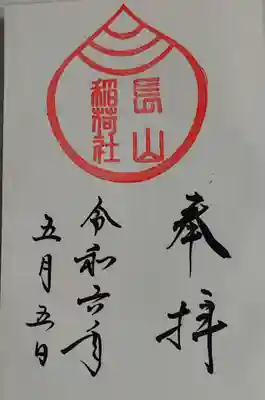 奉拝
長山
稲荷社
令和六年
五月五日